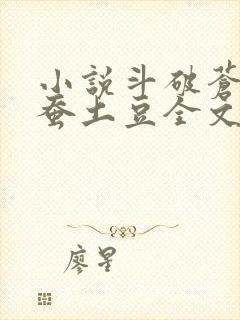 小說斗破蒼
蚕土豆全文
廖星